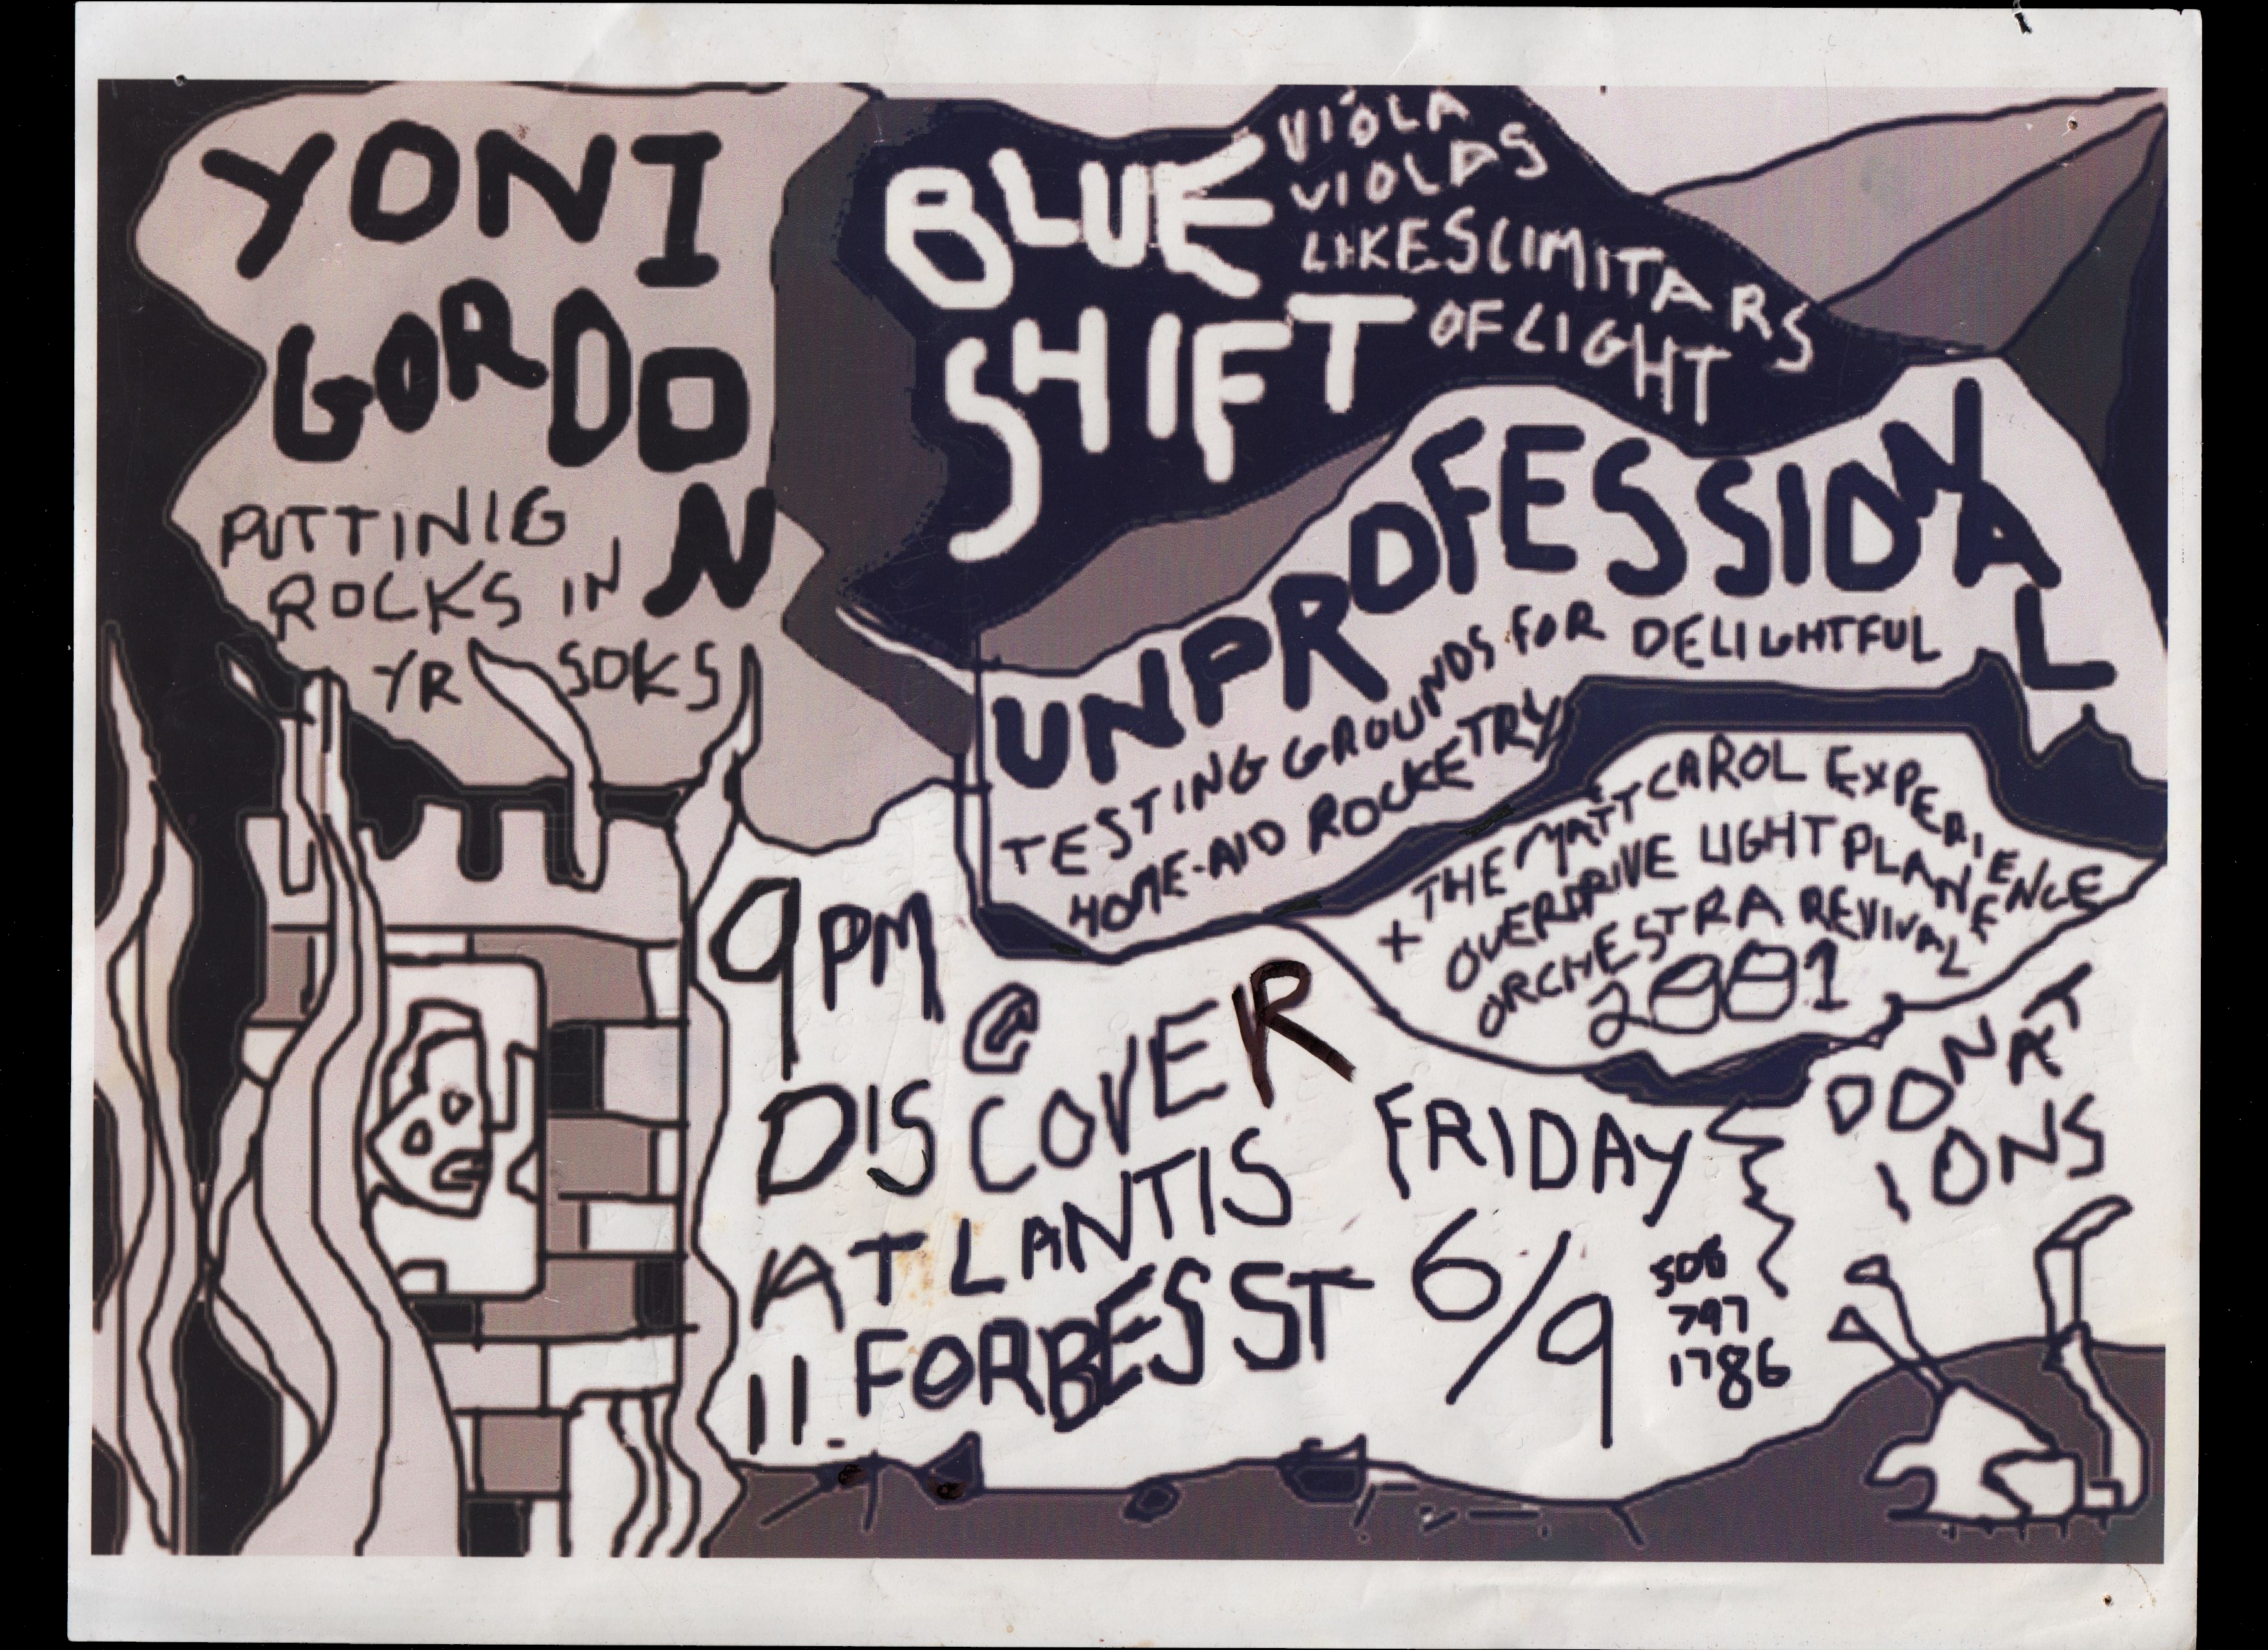 YONI
GORDON
PUTTINIG
ROCKS IN
YR SOKS
BLUE
SHIFT
VIOLA
VIOLAS
LIKE SCIMITARS
OF LIGHT
UNPROFESSIONAL
TESTING GROUNDS FOR DELIGHTFUL
HOME-AID ROCKETRY
+ THE MATT CAROL EXPERIENCE
OVERDRIVE LIGHT PLANE
ORCHESTRA REVIVAL
2001
9PM
@
DISCOVER
ATLANTIS
11. FORBES ST
FRIDAY
6/9
508
797
1786
DONAT
IONS